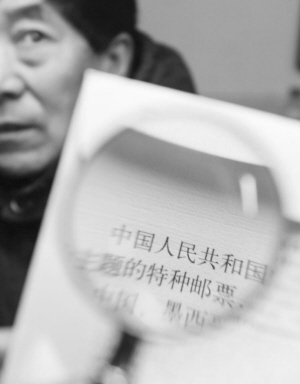 中国人民共和国
主题的特种邮票、
中国、墨西